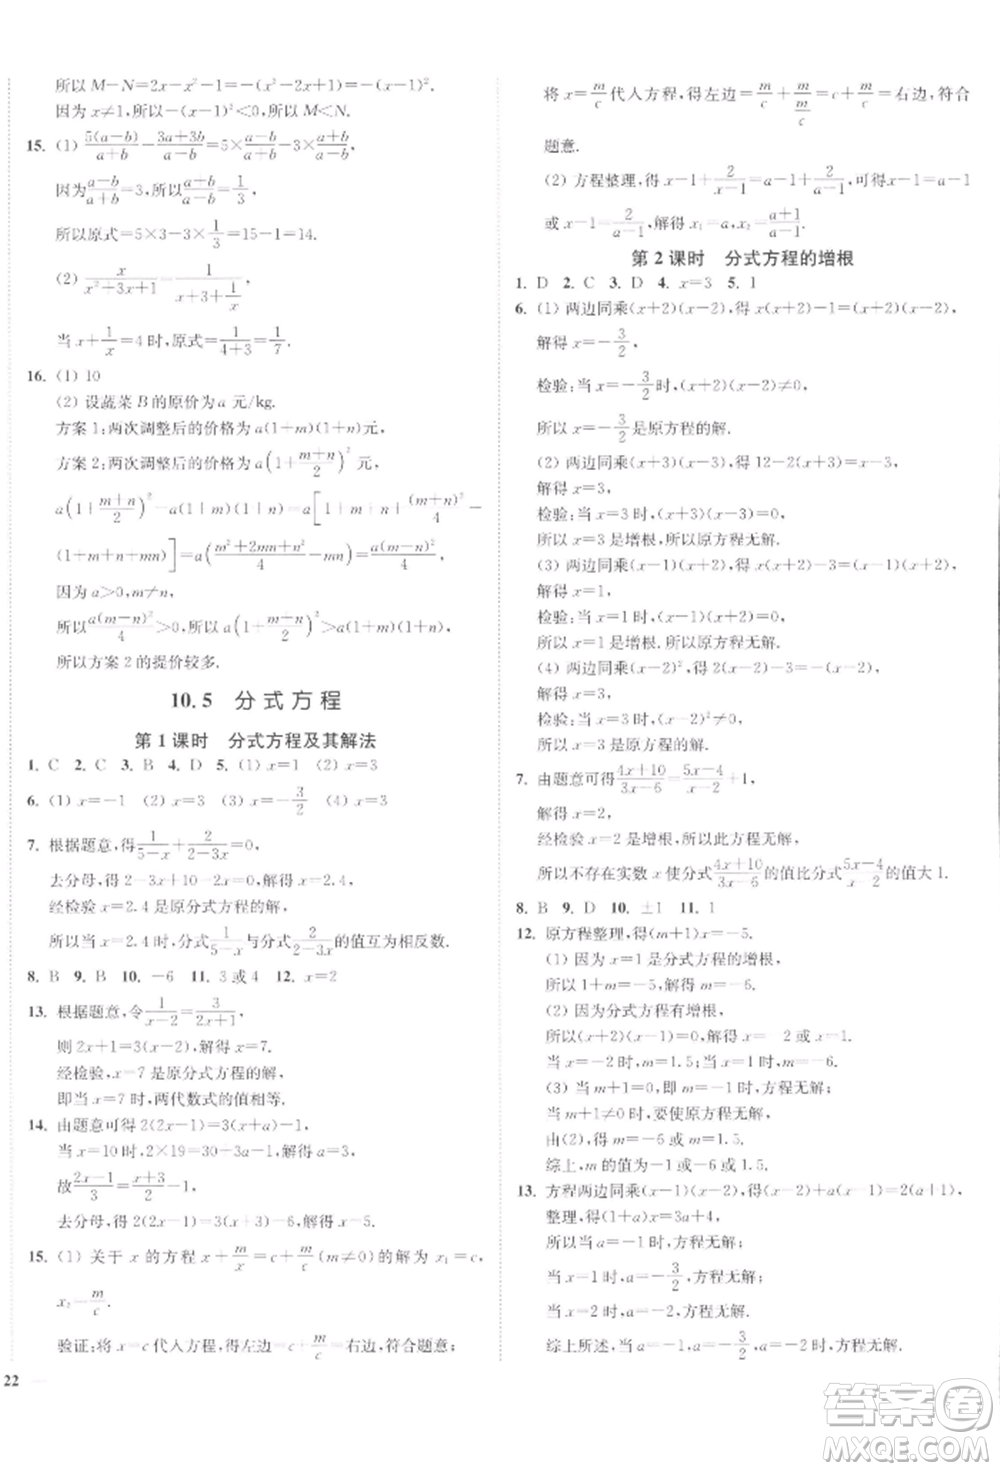 所以 M－N＝2x－x²－1＝－(x²－2x＋1)＝－(x－1)².
因为 x≠1,所以－(x－1)²＜0,所以 M＜N.
15. (1) 5(a－b)/(a＋b)－(3a＋3b)/(a－b)＝5×(a－b)/(a＋b)－3×(a＋b)/(a－b).
因为(a－b)/(a＋b)＝3,所以(a＋b)/(a－b)＝1/3,
所以原式＝5×3－3×1/3＝15－1＝14.
(2) x/(x²＋3x＋1)＝1/(x＋3＋1/x).
当 x＋1/x＝4 时,原式＝1/(4＋3)＝1/7.
16. (1) 10
(2) 设蔬菜 B 的原价为 a 元/kg.
方案 1:两次调整后的价格为 a(1＋m)(1＋n)元,
方案 2:两次调整后的价格为 a(1＋(m＋n)/2)²元,
a(1＋(m＋n)/2)²－a(1＋m)(1＋n)＝a[1＋m＋n＋(m＋n)²/4－
(1＋m＋n＋mn)]＝a((m²＋2mn＋n²)/4－mn)＝a(m－n)²/4.
因为 a＞0,m≠n,
所以a(m－n)²/4＞0,所以 a(1＋(m＋n)/2)²＞a(1＋m)(1＋n).
所以方案 2 的提价较多.
10.5 分式方程
第 1 课时 分式方程及其解法
1. C 2. C 3. B 4. D 5. (1) x＝1 (2) x＝3
6. (1) x＝－1 (2) x＝3 (3) x＝－3/2 (4) x＝3
7. 根据题意,得1/(5－x)＋2/(2－3x)＝0,
去分母,得 2－3x＋10－2x＝0,解得 x＝2.4,
经检验 x＝2.4 是原分式方程的解,
所以当 x＝2.4 时,分式1/(5－x)与分式2/(2－3x)的值互为相反数.
8. B 9. B 10. －6 11. 3 或 4 12. x＝2
13. 根据题意,令1/(x－2)＝3/(2x＋1),
则 2x＋1＝3(x－2),解得 x＝7.
经检验,x＝7 是原分式方程的解,
即当 x＝7 时,两代数式的值相等.
14. 由题意可得 2(2x－1)＝3(x＋a)－1,
当 x＝10 时,2×19＝30＋3a－1,解得 a＝3,
故(2x－1)/3＝(x＋3)/2－1,
去分母,得 2(2x－1)＝3(x＋3)－6,解得 x＝5.
15. (1) 关于 x 的方程 x＋m/x＝c＋m/c(m≠0)的解为 x₁＝c,
x₂＝m/c.
验证:将 x＝c 代入方程,得左边＝c＋m/c＝右边,符合题意;
22
将 x＝m/c代入方程,得左边＝m/c＋m/(m/c)＝m/c＋c＝右边,符合
题意.
(2) 方程整理,得 x－1＋2/(x－1)＝a－1＋2/(a－1),可得 x－1＝a－1
或 x－1＝2/(a－1),解得 x₁＝a,x₂＝(a＋1)/(a－1).
第 2 课时 分式方程的增根
1. D 2. C 3. D 4. x＝3 5. 1
6. (1) 两边同乘(x＋2)(x－2),得 x(x＋2)－1＝(x＋2)(x－2),
解得 x＝－3/2,
检验:当 x＝－3/2时,(x＋2)(x－2)≠0,
所以 x＝－3/2是原方程的解.
(2) 两边同乘(x＋3)(x－3),得 12－2(x＋3)＝0,
解得 x＝3,
检验:当 x＝3 时,(x＋3)(x－3)＝0,
所以 x＝3 是增根,所以原方程无解.
(3) 两边同乘(x－1)(x＋2),得 x(x＋2)－3＝(x－1)(x＋2),
解得 x＝1,
检验:当 x＝1 时,(x－1)(x＋2)＝0,
所以 x＝1 是增根.所以原方程无解.
(4) 两边同乘(x－2)²,得 x(x－2)－(x－2)²＝4,
解得 x＝3,
检验:当 x＝3 时,(x－2)²≠0,
所以 x＝3 是原方程的解.
7. 由题意可得(4x＋10)/(3x－6)＝(5x－4)/(x－2)＋1,
解得 x＝2,
经检验 x＝2 是增根,所以此方程无解,
所以不存在实数 x 使分式(4x＋10)/(3x－6)的值比分式(5x－4)/(x－2)的值大 1.
8. B 9. D 10. ±1 11. 1
12. 原方程整理,得(m＋1)x＝－5.
(1) 因为 x＝1 是分式方程的增根,
所以 1＋m＝－5,解得 m＝－6.
(2) 因为分式方程有增根,
所以(x＋2)(x－1)＝0,解得 x＝－2 或 x＝1,
当 x＝－2 时,m＝1.5;当 x＝1 时,m＝－6.
(3) 当 m＋1＝0,即 m＝－1 时,方程无解;
当 m＋1≠0 时,要使原方程无解,
由(2)得 m＝－6 或 m＝1.5.
综上,m 的值为－1 或－6 或 1.5.
13. 方程两边同乘(x－1)(x－2),得 x－2＋a(x－1)＝2(a＋1),
整理,得(a＋1)x＝3a＋4,
所以当 a＝－1 时,方程无解;
当 x＝1 时,a＝－3/2,方程无解;
当 x＝2 时,a＝－2,方程无解.
综上所述,当 a＝－1,a＝－3/2或 a＝－2 时,方程无解.
答案圈
MXQE.COM